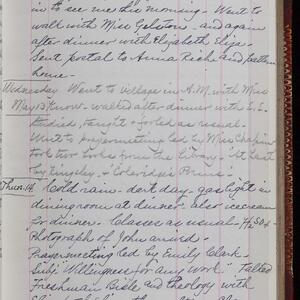 in to see me this morning. Went to
walk with Miss Gelston, and again
after dinner with Elizabeth Elije-
Sent postal to Anna Rech and
home -
Wednesday Went to village in A.M. with Miss
May 13 Know - walked after dinner with E.E.
Studied, taught & fooled as usual -
Went to prayermeeting led by Miss Chapin
took two books from the Library. At Last
by Kingsley & Coleridge's Poems!
Thurs. 14 Cold rain - dark day - gas light in
dining room at dinner - also ice cream
for dinner - Classes as usual -
Photograph of John arrived -
Prayermeeting led by Emily Clark.
Subj. Willingness for any work" Talked
Freshman Bible and theology with